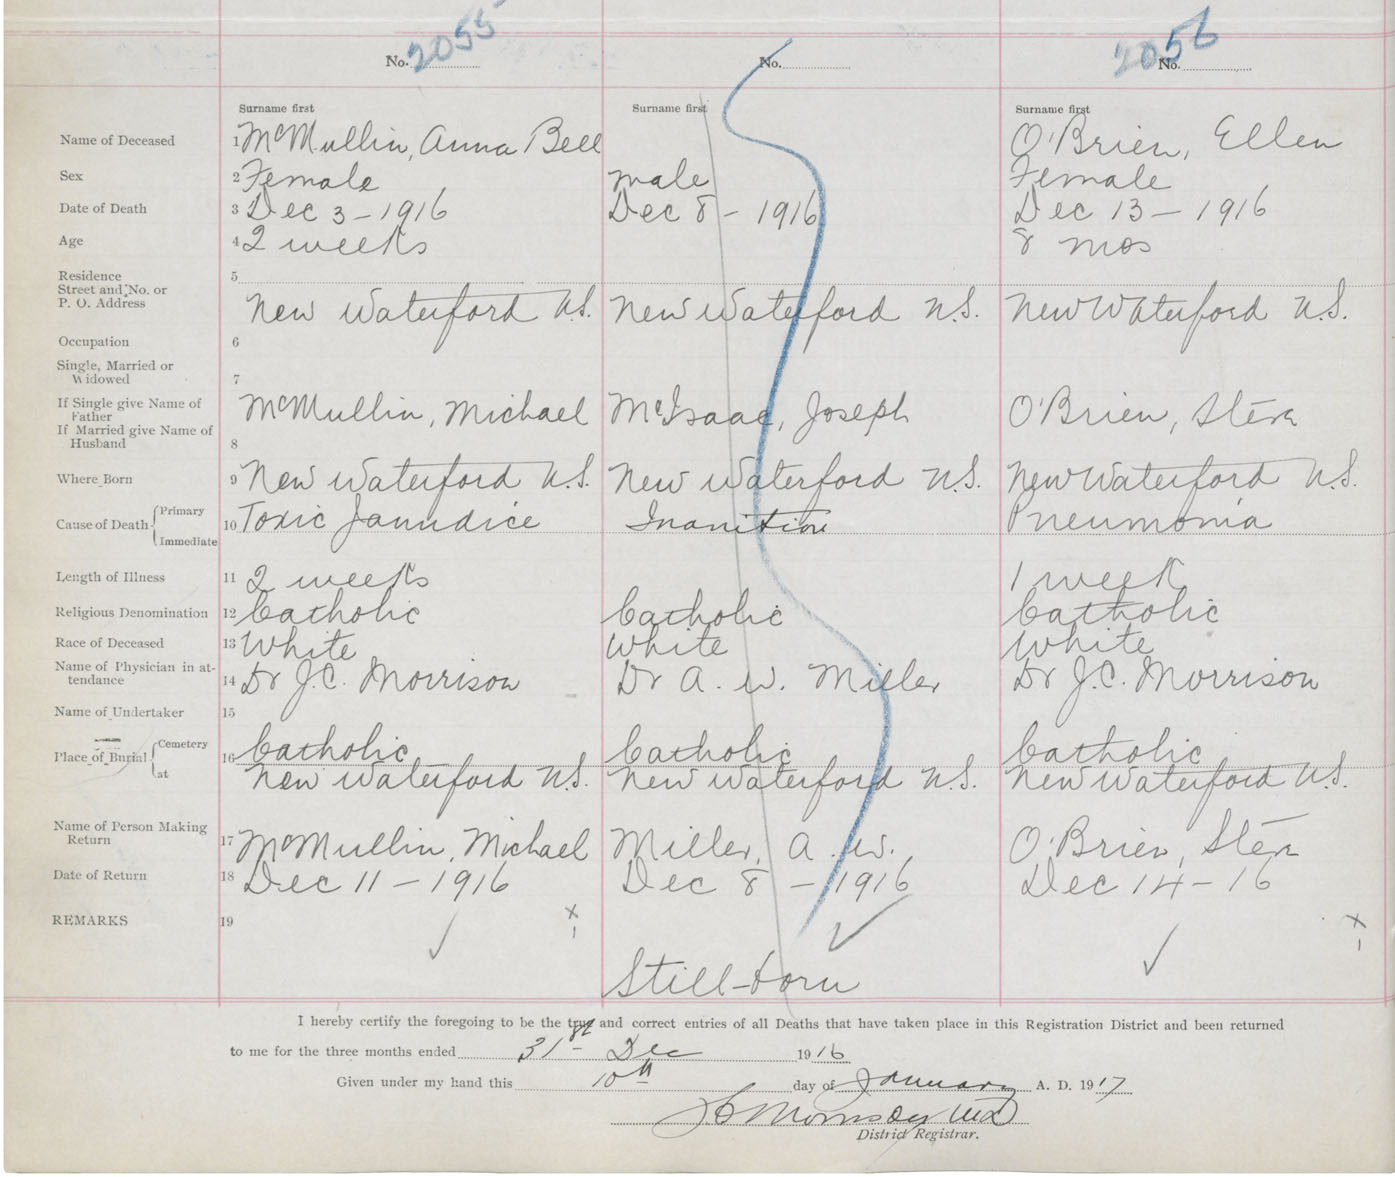 2055 2056
No. No. No.
Surname first Surname first Surname first
Name of Deceased 1 McMullin, Anna Bell O'Brien, Ellen
Sex 2 Female male Female
Date of Death 3 Dec 3 - 1916 Dec 8 - 1916 Dec 13 - 1916
Age 4 2 weeks 8 mos
Residence 5
Street and No. or
P. O. Address New Waterford N.S. New Waterford N.S. New Waterford N.S.
Occupation 6
Single, Married or
Widowed 7
If Single give Name of McMullin, Michael McIsaac, Joseph O'Brien,
Father
If Married give Name of
Husband 8
Where Born 9 New Waterford N.S. New Waterford N.S. New Waterford N.S.
Cause of Death Primary 10 Toxic Jaundice Inanition Pneumonia
Immediate
Length of Illness 11 2 weeks 1 week
Religious Denomination 12 Catholic Catholic Catholic
Race of Deceased 13 White White White
Name of Physician in at-
tendance 14 Dr J.C. Morrison Dr A. W. Miller Dr J.C. Morrison
Name of Undertaker 15
Place of Burial Cemetery 16 Catholic Catholic Catholic
at New Waterford N.S. New Waterford N.S. New Waterford N.S.
Name of Person Making
Return 17 McMullin, Michael Miller, A. W. O'Brien,
Date of Return 18 Dec 11 - 1916 Dec 8 - 1916 Dec 14 - 16
REMARKS 19 x x
Still-born
I hereby certify the foregoing to be the true and correct entries of all Deaths that have taken place in this Registration District and been returned
to me for the three months ended 31st Dec 1916
Given under my hand this 10th day of January A. D. 1917
District Registrar.